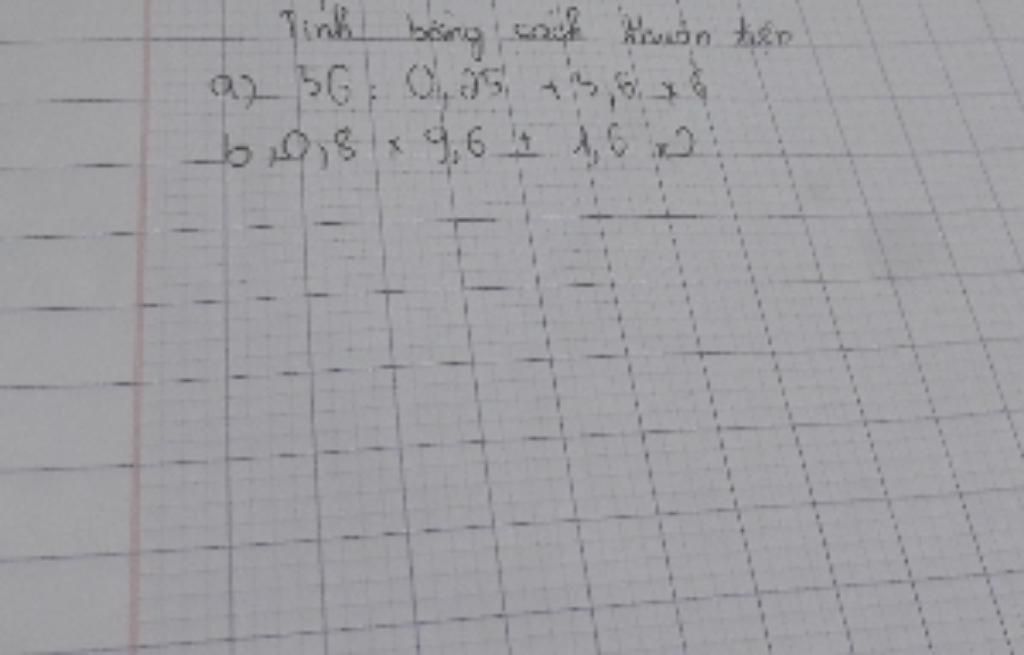 Tính bằng cách thuận tiện
a) 36 : 0,25 + 3,6 x 6
b, 0,8 x 9,6 + 1,6 x 2